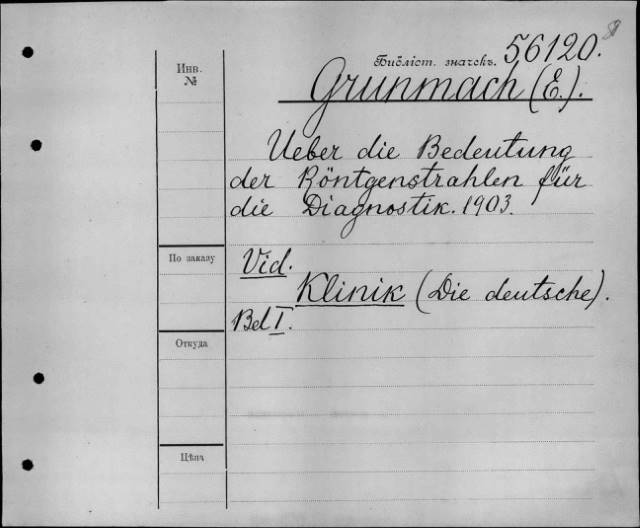 Библіот. значекъ. 56120.
Инв.
№
Grunmach (E.).
Ueber die Bedeutung
der Röntgenstrahlen für
die Diagnostik. 1903.
По заказу
Vid.
Klinik (Die deutsche).
Bd I.
Откуда
Цѣна